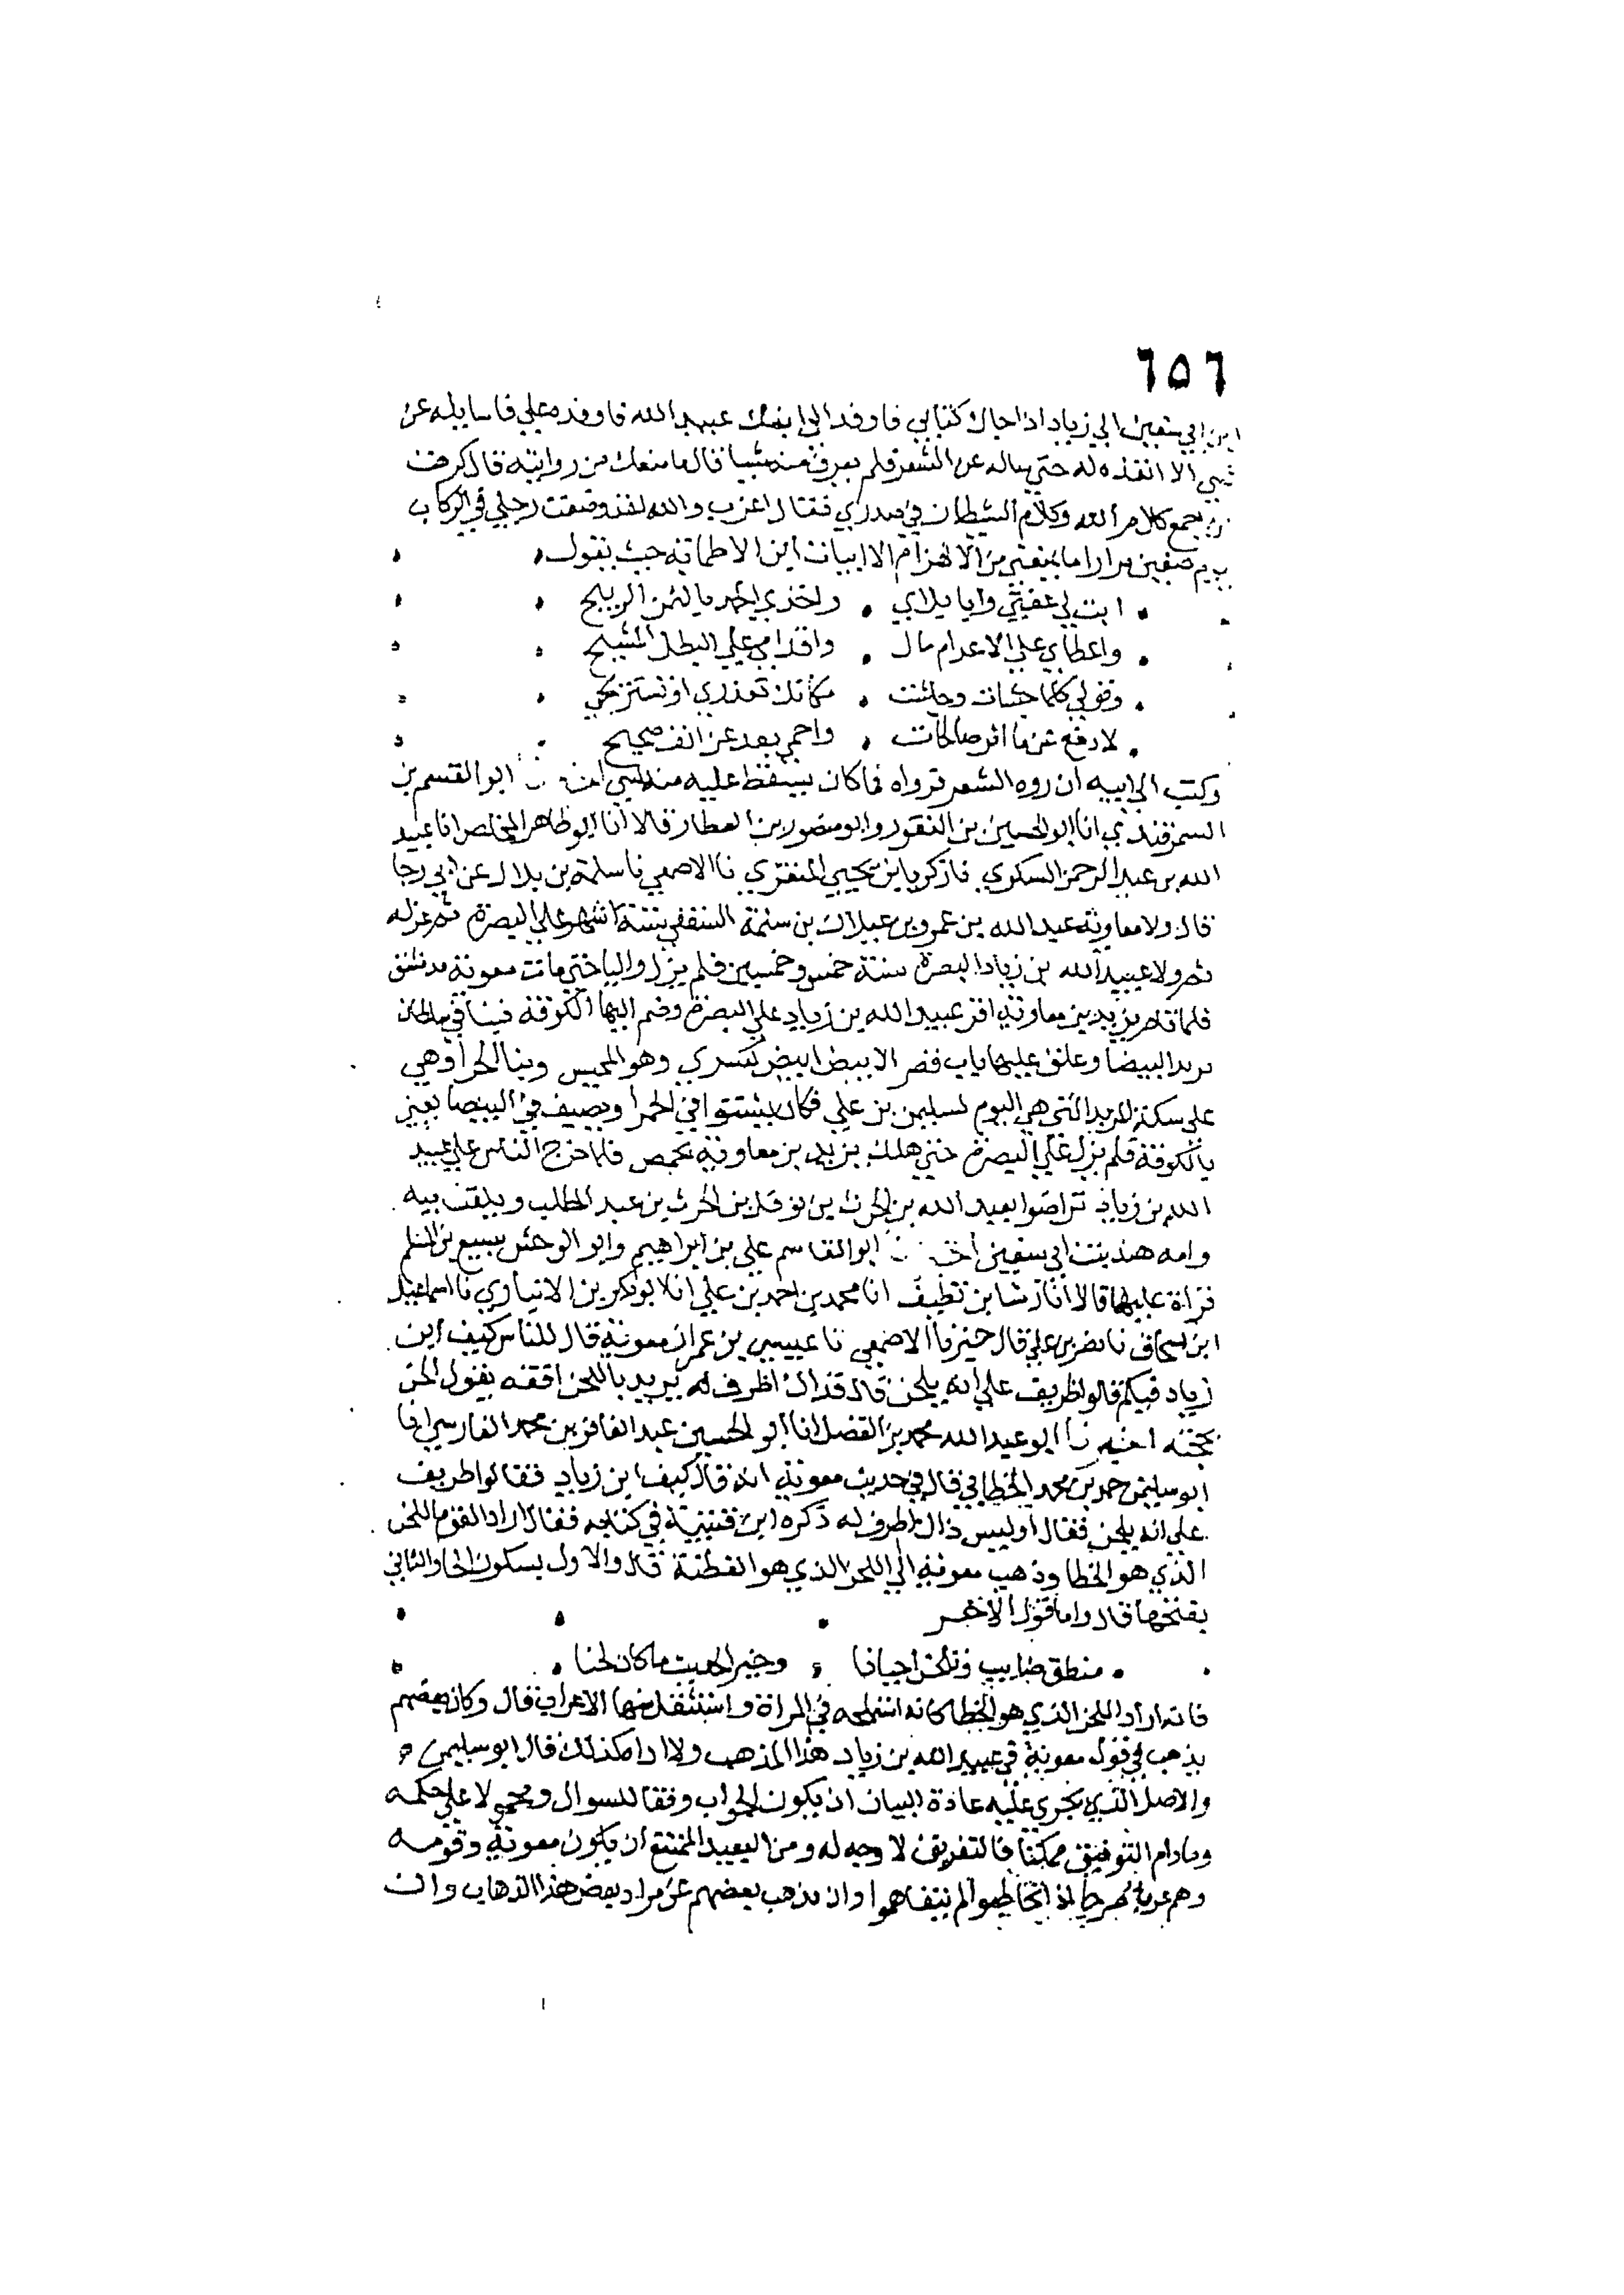 ٦٥٦
ابن ابي سفين الي زياد اذا جاك كتابي فاوفد الي ابنك عبيد الله فاوفده علي فما سايله عن
شي الا انفذه له حتي ساله عن الشعر فلم يعرف منه شيا قال ما منعك من روايته قال كرهت
ان اجمع كلام الله وكلام الشيطان في صدري فقال اغرب والله لقد وضعت رجلي في الركاب
يوم صفين مرارا ما يمنعني من الانهزام الا ابيات ابن الاطنابة حيث يقول
ابت لي عفتي وابا بلاي واخذي الحمد بالثمن الربيح
واعطاي علي الاعدام مال واقدامي علي البطل المشيح
وقولي كلما جشات وجاشت مكانك تعذري او تستريحي
لادفع عن ما اثر صالحات واحمي بعد عن انف صحيح
وكتب الي ابيه ان روه الشعر فرواه فما كان يسقط عليه منه شي ابو القسم بن
السمرقندي انا ابو الحسين بن النقور وابو منصور بن العطار قالا انا ابو طاهر المخلص انا عبيد
الله بن عبد الرحمن السكوي نا زكريا بن يحيي المنقري نا الاصمعي نا سلمة بن بلال عن ابي رجا
قال ولا معاوية عبد الله بن عمرو بن عيلان بن سلمة الثقفي ستة اشهر علي البصرة ثم عزله
ثم ولا عبيد الله بن زياد البصرة سنة خمس وخمسين فلم يزل واليا حتي مات معوية بدمشق
فلما قام يزيد بن معاوية اقر عبيد الله بن زياد علي البصرة وضم اليها الكوفة فبنا في سلطان
يزيد البيضا وعلق عليها باب قصر الابيض ابيض كسري وهو المحبس وبنا الحمرا وهي
علي سكة المربد التي هي اليوم لسليمن بن علي فكان يشتوا في الحمرا ويصيف في البيضا يعني
بالكوفة فلم يزل علي البصرة حتي هلك يزيد بن معاوية بحمص فلما خرج الناس علي عبيد
الله بن زياد تراضوا بعبد الله بن الحرث بن نوفل بن الحرث بن عبد المطلب ويلقب ببه
وامه هند بنت ابي سفين ابو القاسم علي بن ابراهيم وابو الوحش سبيع بن المسلم
قراة عليهما قالا انا رشا بن نظيف انا محمد بن احمد بن علي انا ابو بكر بن الانباري نا اسماعيل
ابن اسحاق نا نصر بن علي قال خبرنا الاصمعي نا عيسي بن عمر ان معوية قال للناس كيف ابن
زياد فيكم قالو اظريف علي انه يلحن قال فذاك اظرف له يريد باللحن افقه يقول الحن
بحجته ابو عبد الله محمد بن الفضل انا ابو الحسين عبد الغافر بن محمد الفارسي انا
ابو سليمن حمد بن محمد الخطابي قال في حديث معوية انه قال كيف ابن زياد فقالوا ظريف
علي انه يلحن فقال اوليس ذاك اظرف له ذكره ابن قتيبة في كتابه فقال اراد القوم اللحن
الذي هو الخطا وذهب معوية الي اللحن الذي هو الفطنة قال والاول بسكون الحا والثاني
بفتحها قال واما قول الاخر
منطق صايب وتلحن احيانا وخير الحديث ما كان لحنا
فانه اراد اللحن الذي هو الخطا كانه استملحه في المراة واستثقل منها الاعراب قال وكان بعضهم
يذهب في قول معوية في عبيد الله بن زياد هذا المذهب ولا اراه كذلك قال ابو سليمن
والاصل الذي يجري عليه عادة البيان ان يكون الجواب وفقا للسوال ومحمولا علي حكمه
ومادام التوفيق ممكنا فالتفريق لا وجه له ومن البعيد الممتنع ان يكون معوية وقومه
وهم عرب اذا تخاطبوا لم يتفاهموا وان يذهب بعضهم عن مراد بعض هذا الذهاب وان